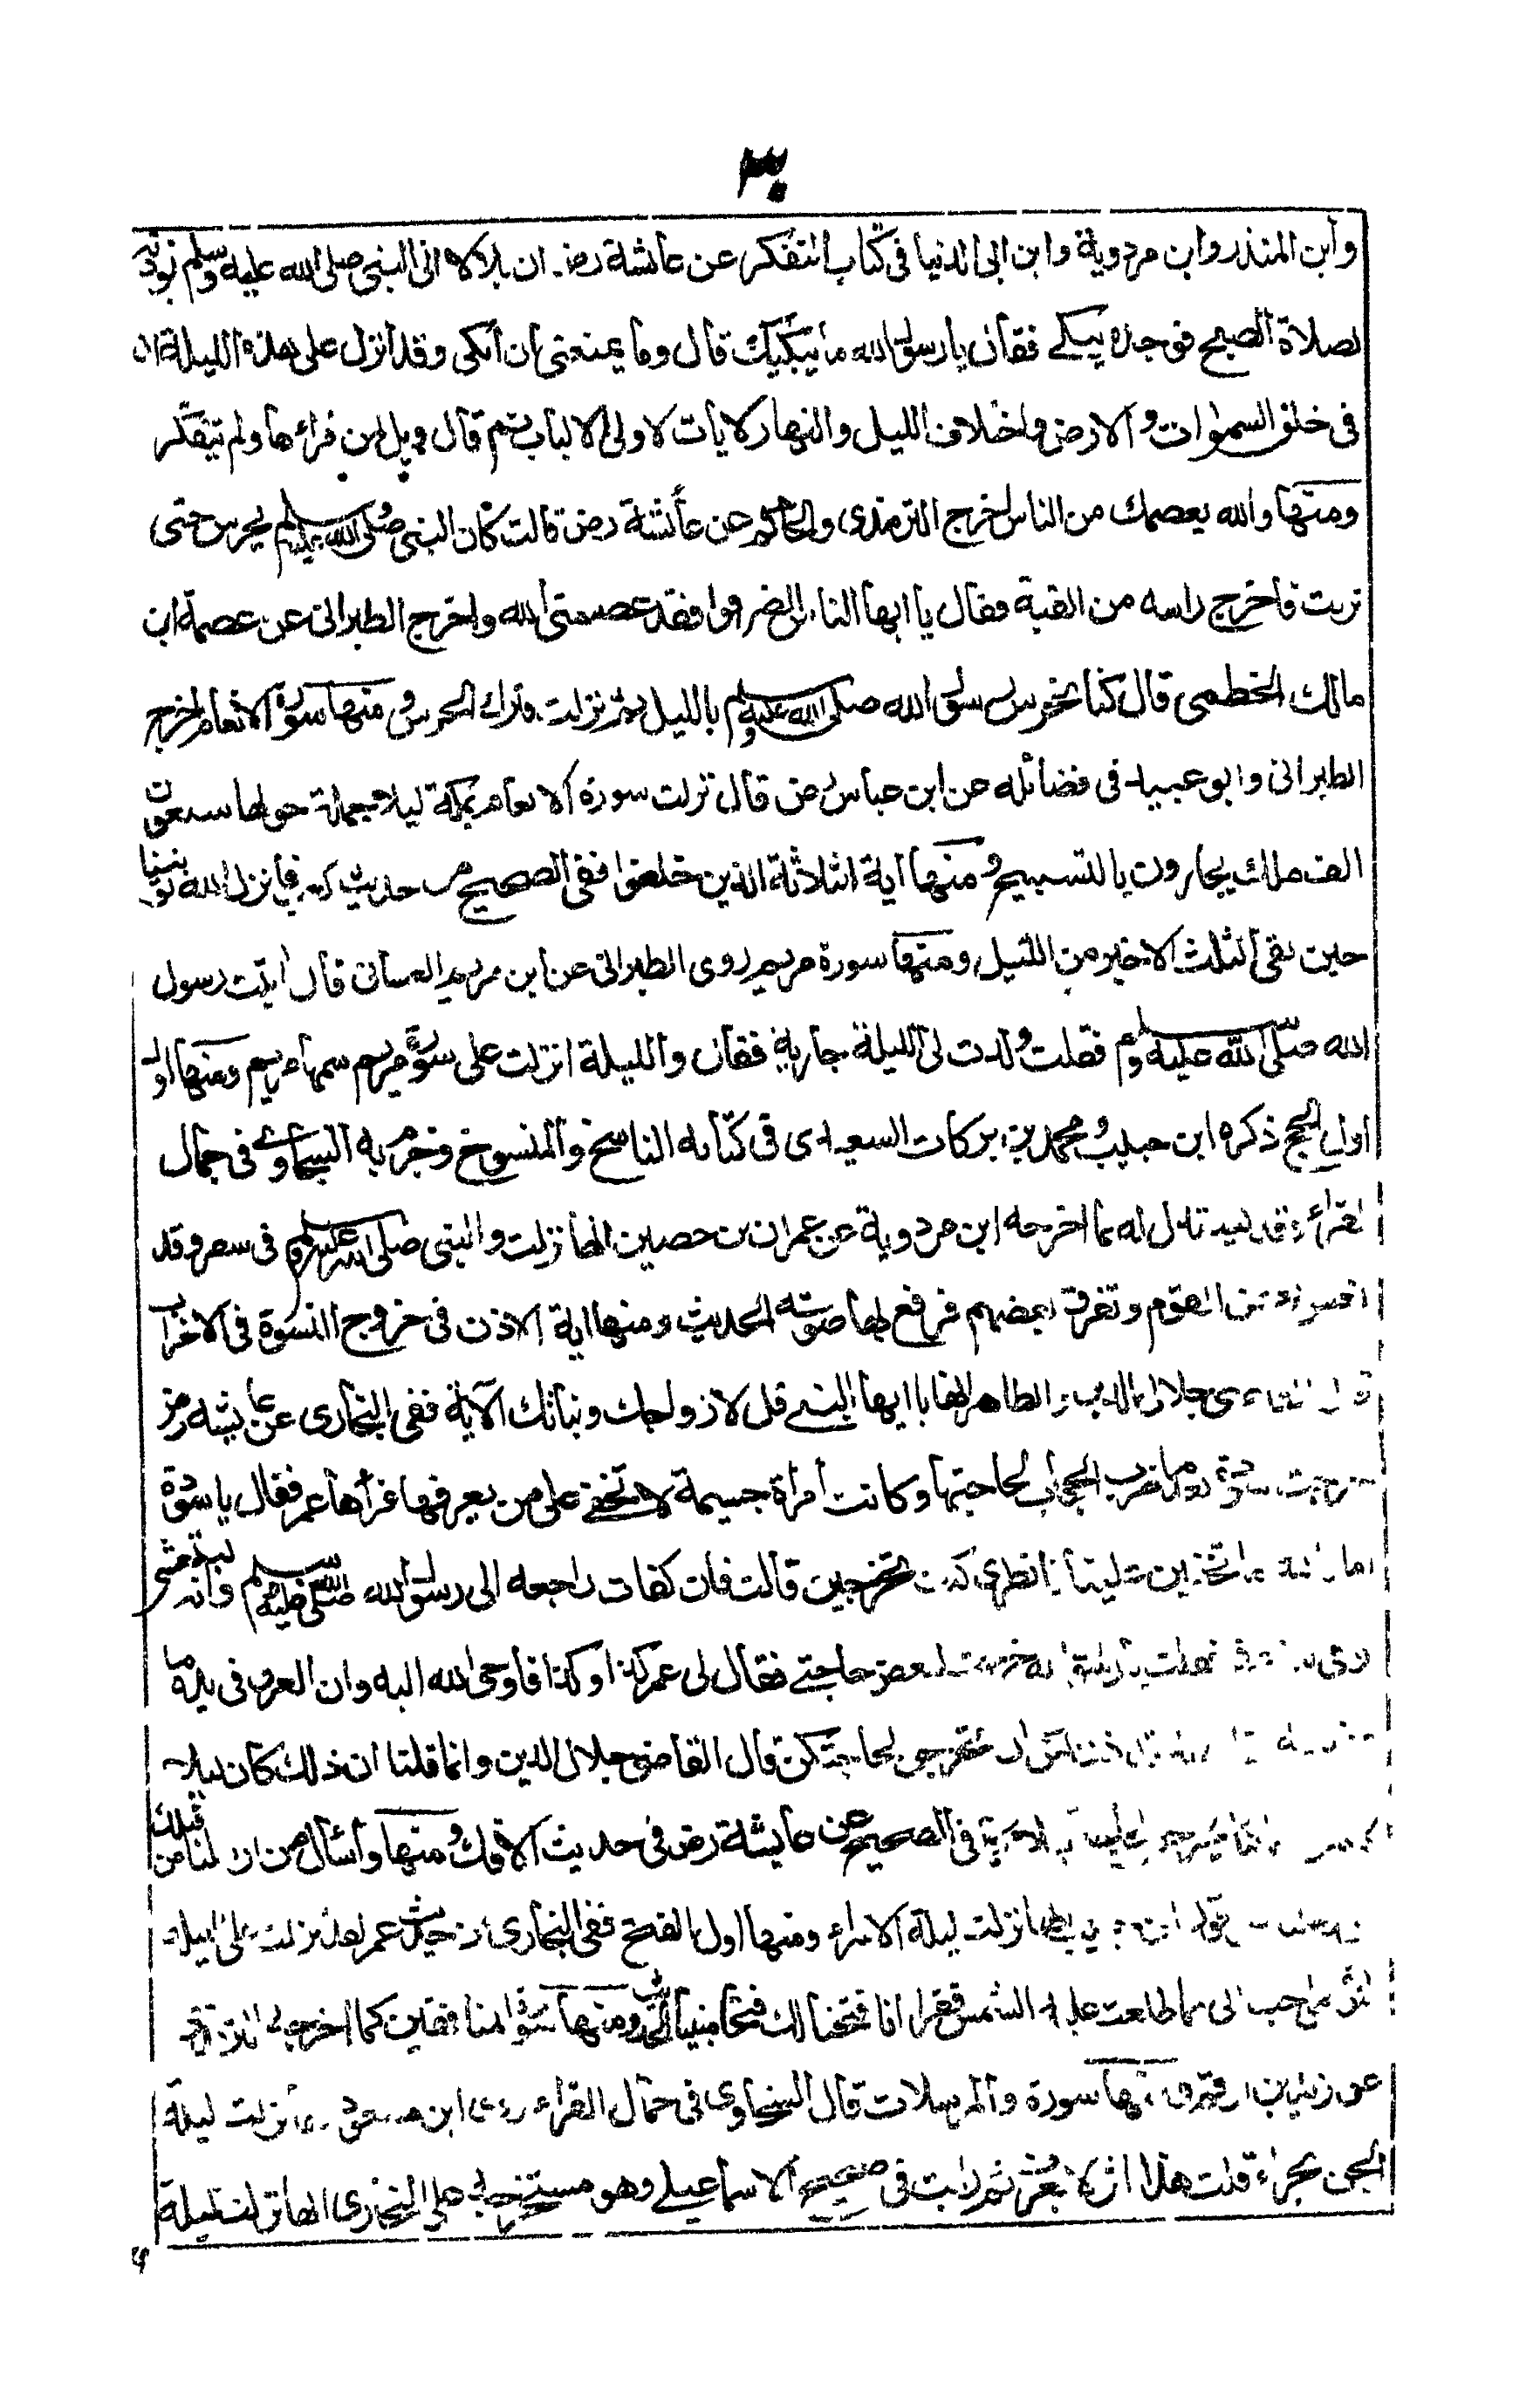 ٣٠
وابن المنذر وابن مردوية وابن ابى الدنيا فى كتاب التفكر عن عائشة رضـ ان بلالا اتى النبى صلى الله عليه وسلم يوذنه
لصلاة الصبح فوجده يبكے فقال يارسول الله ما يبكيك قال وما يمنعنى ان ابكى وقد انزل على هذه الليلة ان
فى خلق السموات و الارض واختلاف الليل والنهار لايات لاولى الالباب ثم قال ويل لمن قراءها ولم يتفكر
ومنها والله يعصمك من الناس اخرج الترمذى والحاكم عن عائشة رض قالت كان النبى صلى الله عليه وسلم يحرس حتى
نزلت فاخرج راسه من القبة فقال يا ايها الناس انصرفوا فقد عصمنى الله واخرج الطبرانى عن عصمة ابن
مالك الخطمى قال كنا نحرس رسول الله صلى الله عليه وسلم بالليل حتى نزلت فترك الحرس و منها سورة الانعام اخرج
الطبرانى وابو عبيد فى فضائله عن ابن عباس رض قال نزلت سورة الانعام بمكة ليلا جملة حولها سبعون
الف ملك يجارون بالتسبيح و منها اية الثلاثة الذين خلفوا ففى الصحيح من حديث كعب فانزل الله توبتنا
حين بقى الثلث الاخير من الليل ومنها سورة مريم روى الطبرانى عن ابن مريم الغسانى قال اتيت رسول
الله صلى الله عليه وسلم فقلت ولدت لى الليلة جارية فقال والليلة انزلت على سورة مريم سمها مريم ومنها اول
اول الحج ذكره ابن حبيب و محمد بن بركات السعيدى فى كتابه الناسخ والمنسوخ وجزم به السخاوے فى جمال
القراء وقد يستدل له بما اخرجه ابن مردوية عن عمران بن حصين انها نزلت والنبى صلى الله عليه وسلم فى سفر وقد
القوم وتفرق بعضهم فرفع بها صوته الحديث ومنها اية الاذن فى خروج النسوة فى الاحزاب
قال القاضى جلال الدين والظاهر انها يا ايها النبے قل لازواجك وبناتك الآية ففى البخارى عن عائشه رض
خرجت سودة بعد ما ضرب الحجاب لحاجتها وكانت امراة جسيمة لا تخفے على من يعرفها فراها عمر فقال يا سودة
اما والله ما تخفين علينا فانظرى كيف تخرجين قالت فانكفات راجعه الى رسول الله صلى الله عليه وسلم وانه ليتعشى
وفى يده عرق فقلت يارسول الله خرجت لبعض حاجتے فقال لى عمر كذا وكذا فاوحى الله اليه وان العرق فى يده ما
اذن لكن ان تخرجن لحاجتكن قال القاضى جلال الدين وانما قلنا ان ذلك كان ليلا
فى الصحيح عن عايشة رض فى حديث الافك و منها واسأل من ارسلنا من قبلك
نزلت ليلة الاسراء ومنها اول الفتح ففى البخارى من حديث عمر لقد نزلت على الليلة
احب الى مما طلعت عليه الشمس فقرا انا فتحنا لك فتحا مبينا الحديث ومنها سورة المنافقين كما اخرجه الترمذى
عن زيد بن ارقم و منها سورة والمرسلات قال السخاوى فى جمال القراء روى ابن مسعود انها نزلت ليلة
الجن بحراء قلت هذا اثر لا يعرف ثم رايت فى صحيح الاسماعيلے وهو مستخرجه على البخارى انها نزلت ليلة